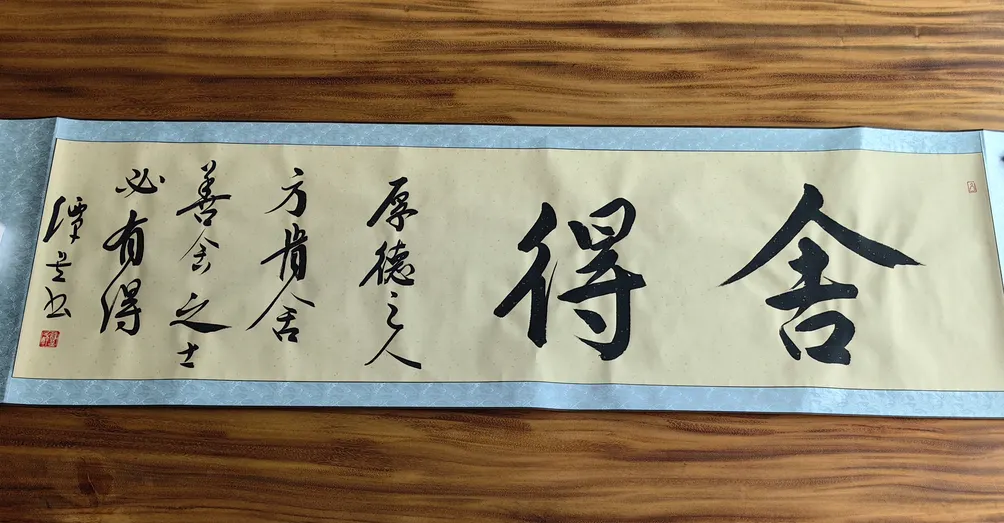 舍得
厚德之人
方肯舍
善舍之士
必有得